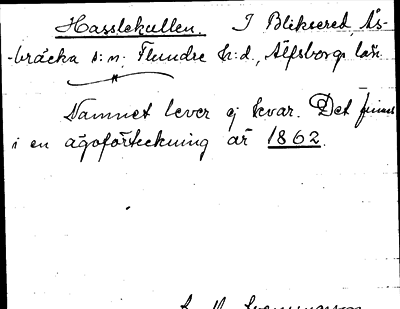 Hasslekullen. I Blikered, Ås-
-bräcka s:n; Flundre h:d., Älfsborgs län
Namnet lever ej kvar. Det finns
i en ägoförteckning år 1862.